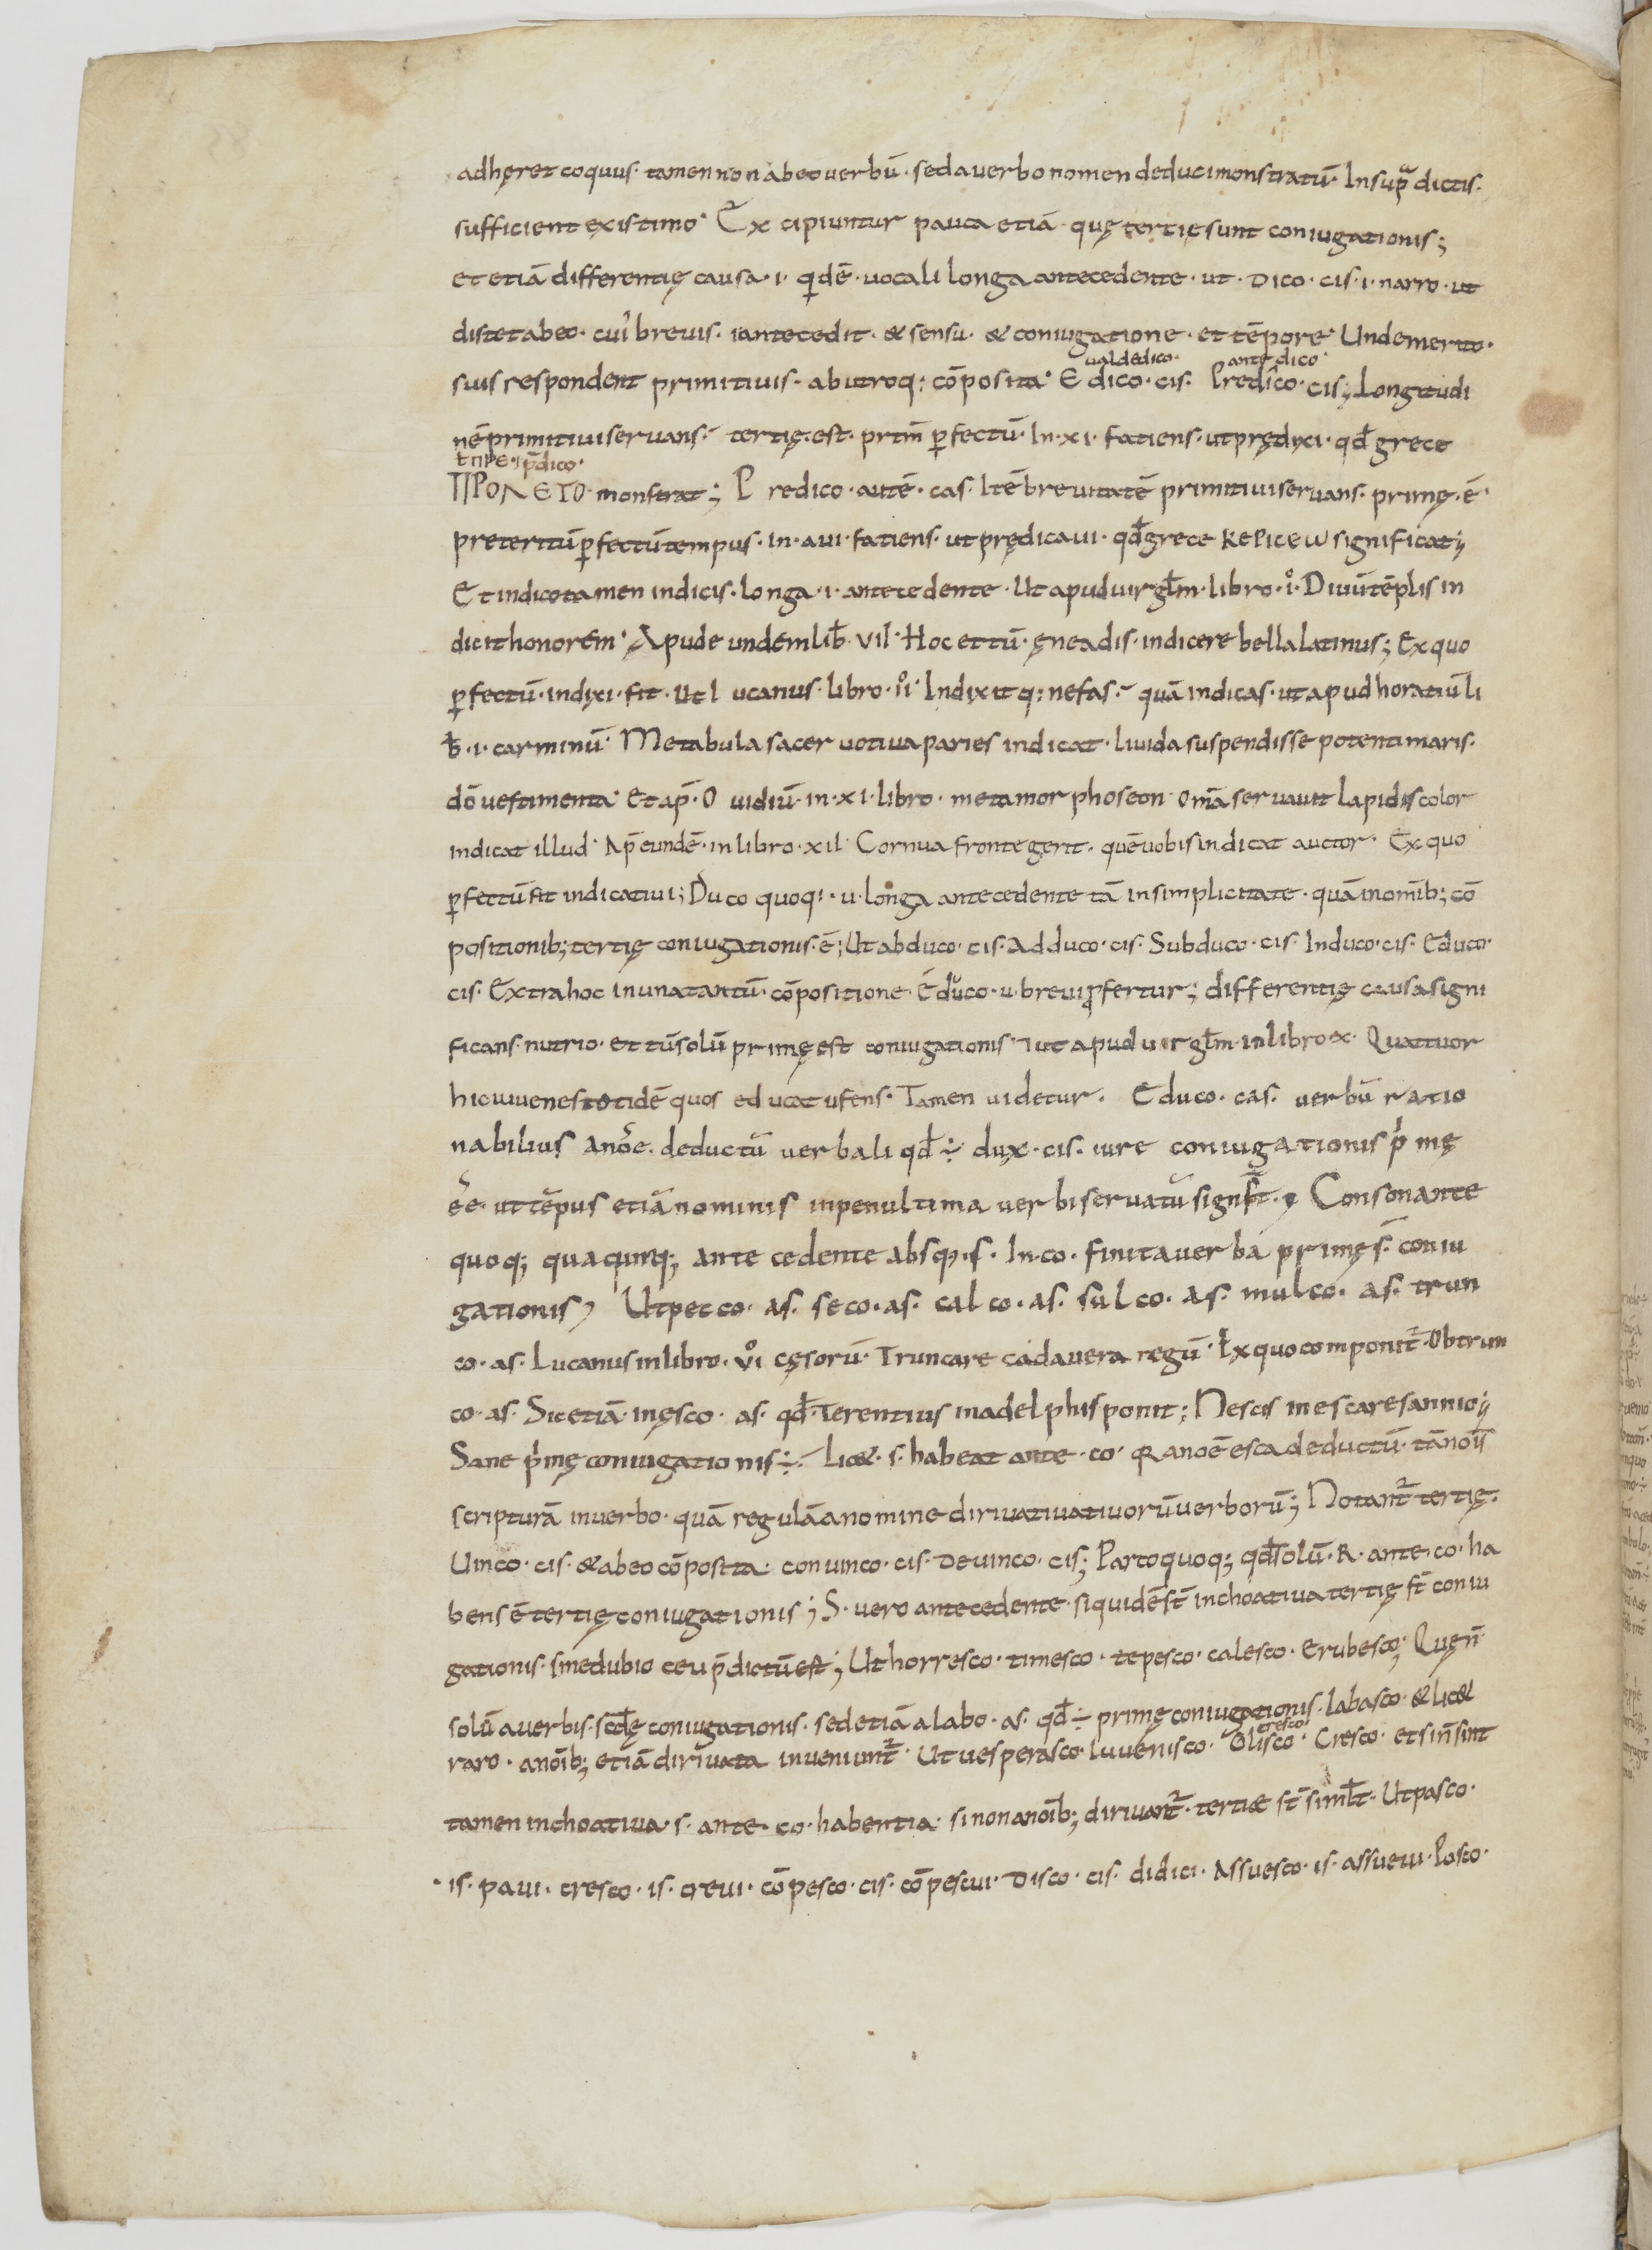 adhęret coquus· tamen non ab eo uerbū· sed a uerbo nomen deduci monstratū· In sup̄a dictis·
sufficient existimo· Excipiuntur pauca etiā quę tertię sunt coniugationis;
et etiā differentię causa· i· q̇dē· uocali longa antecedente· ut· dico· cis· i· narro· ut
distet abeo· cui breuis· i antecedit· & sensu· & coniugatione· et tēpore· Unde merito·
ualde dico· ante dico·
suis respondent primitiuis· ab utroq: cōposita· Edico· cis· Predico· cis; Longitudi
nē primitiui seruans· tertię· est· p̄fectū· In· xi· fatiens· ut prędixi· qđ grece
p̄dico·
ΠΡΟΛΕΓΟ· monstrat; Predico· autē· cas· Itē breuitatē primitiui seruans· primę· ē·
preteritū p̄fectū tempus· in· aui· fatiens· ut prędicaui· qđ grece ΚΕΡΙCΕW significat;
Et indico tamen indicis· longa· i· antecedente· Ut apud uirgłm· libro· i̊· Diuū tēplis in
dicit honorem· Apud eundem lib̄· VII· Hoc et tū· ęneadis· indicere bella latinus; Ex quo
p̄fectū· indixi· fit· Ut lucanus· libro· i̊· Indixit q: nefas· quā indicas· ut apud horatiū li
b̄· i· carminū· Me tabula sacer uotiua paries indicat· liuida suspendisse potenti maris·
dō uestimenta· Et ap̄· Ouidiū· in· xi· libro· metamorphoseon· omā seruauit lapidis color
indicat illud· Ap̄ eundē· in libro· xii· Cornua fronte gerit· quē uobis indicat auctor· Ex quo
p̄fectū fit indicatiui; Duco quoq:· u· longa antecedente tā in simplicitate· quā in omīb; cō
positionib; tertię coniugationis· ē; Ut abduco· cis· Adduco· cis· Subduco· cis· Induco· cis· Educo·
cis· Extra hoc in una tantū· cōpositione· Educo· u· breui p̄fertur; differentię causa signi
ficans· nutrio· et tū solū primę est coniugationis· ut apud uirgłm· in libro· x· Quattuor
hic iuuenes totidē quos educat ufens· Tamen uidetur· Educo· cas· uerbū ratio
nabilius a noe· deductū uerbali qđ ÷ dux· cis· iure coniugationis p̍mę
ēe· ut tēpus etiā nominis in penultima uerbi seruatū signf̄t·; Consonante
quoq; quacunq; antecedente absq;· s· In· co· finita uerba primę s̄· coniu
gationis; Ut pecco· as· seco· as· calco· as· sulco· as· mulco· as· trun
co· as· Lucanus in libro· vi̊· cęsorū· Truncare cadauera regū· Ex quo componit̄· Obtrun
co· as· Sic etiā· inęsco· as· qđ· Terentius in adelphis ponit; Nescis inescare sannio;
Sane p̍mę coniugationis ÷· lic&· s· habeat ante· co· Q̄ a noē esca deductū· tā noīs
scripturā in uerbo· quā regulā a nomine diriuatiuatiuorū uerborū; Notant̄ tertię·
Uinco· cis· & ab eo cōposita· conuinco· cis· deuinco· cis; Parco quoq; qđ solū· R· ante· co· ha
bens ē tertię coniugationis; S· uero antecedente· siquidē s̄t inchoatiua tertię s̄t coniu
gationis· sine dubio ceu p̄dictū est; Ut horresco· timesco· tepesco· calesco· Erubesco; Quę n̄
solū a uerbis· scdę coniugationis· sed etiā a labo· as· qđ ÷ primę coniugationis· labasco· & lic&
cresco·
raro· a noīb; etiā diriuata inueniunt̄· Ut uesperasco· Iuuenisco· Olisco· Cresco· et si n̄ sint
tamen inchoatiua· s· ante· co· habentia· si non a noīb; diriuant̄· tertiæ s̄t simłt· Ut pasco·
is· paui· cresco· is· creui· cōpesco· cis· cōpescui· Disco· cis· didici· Assuesco· is· assueui· Posco·